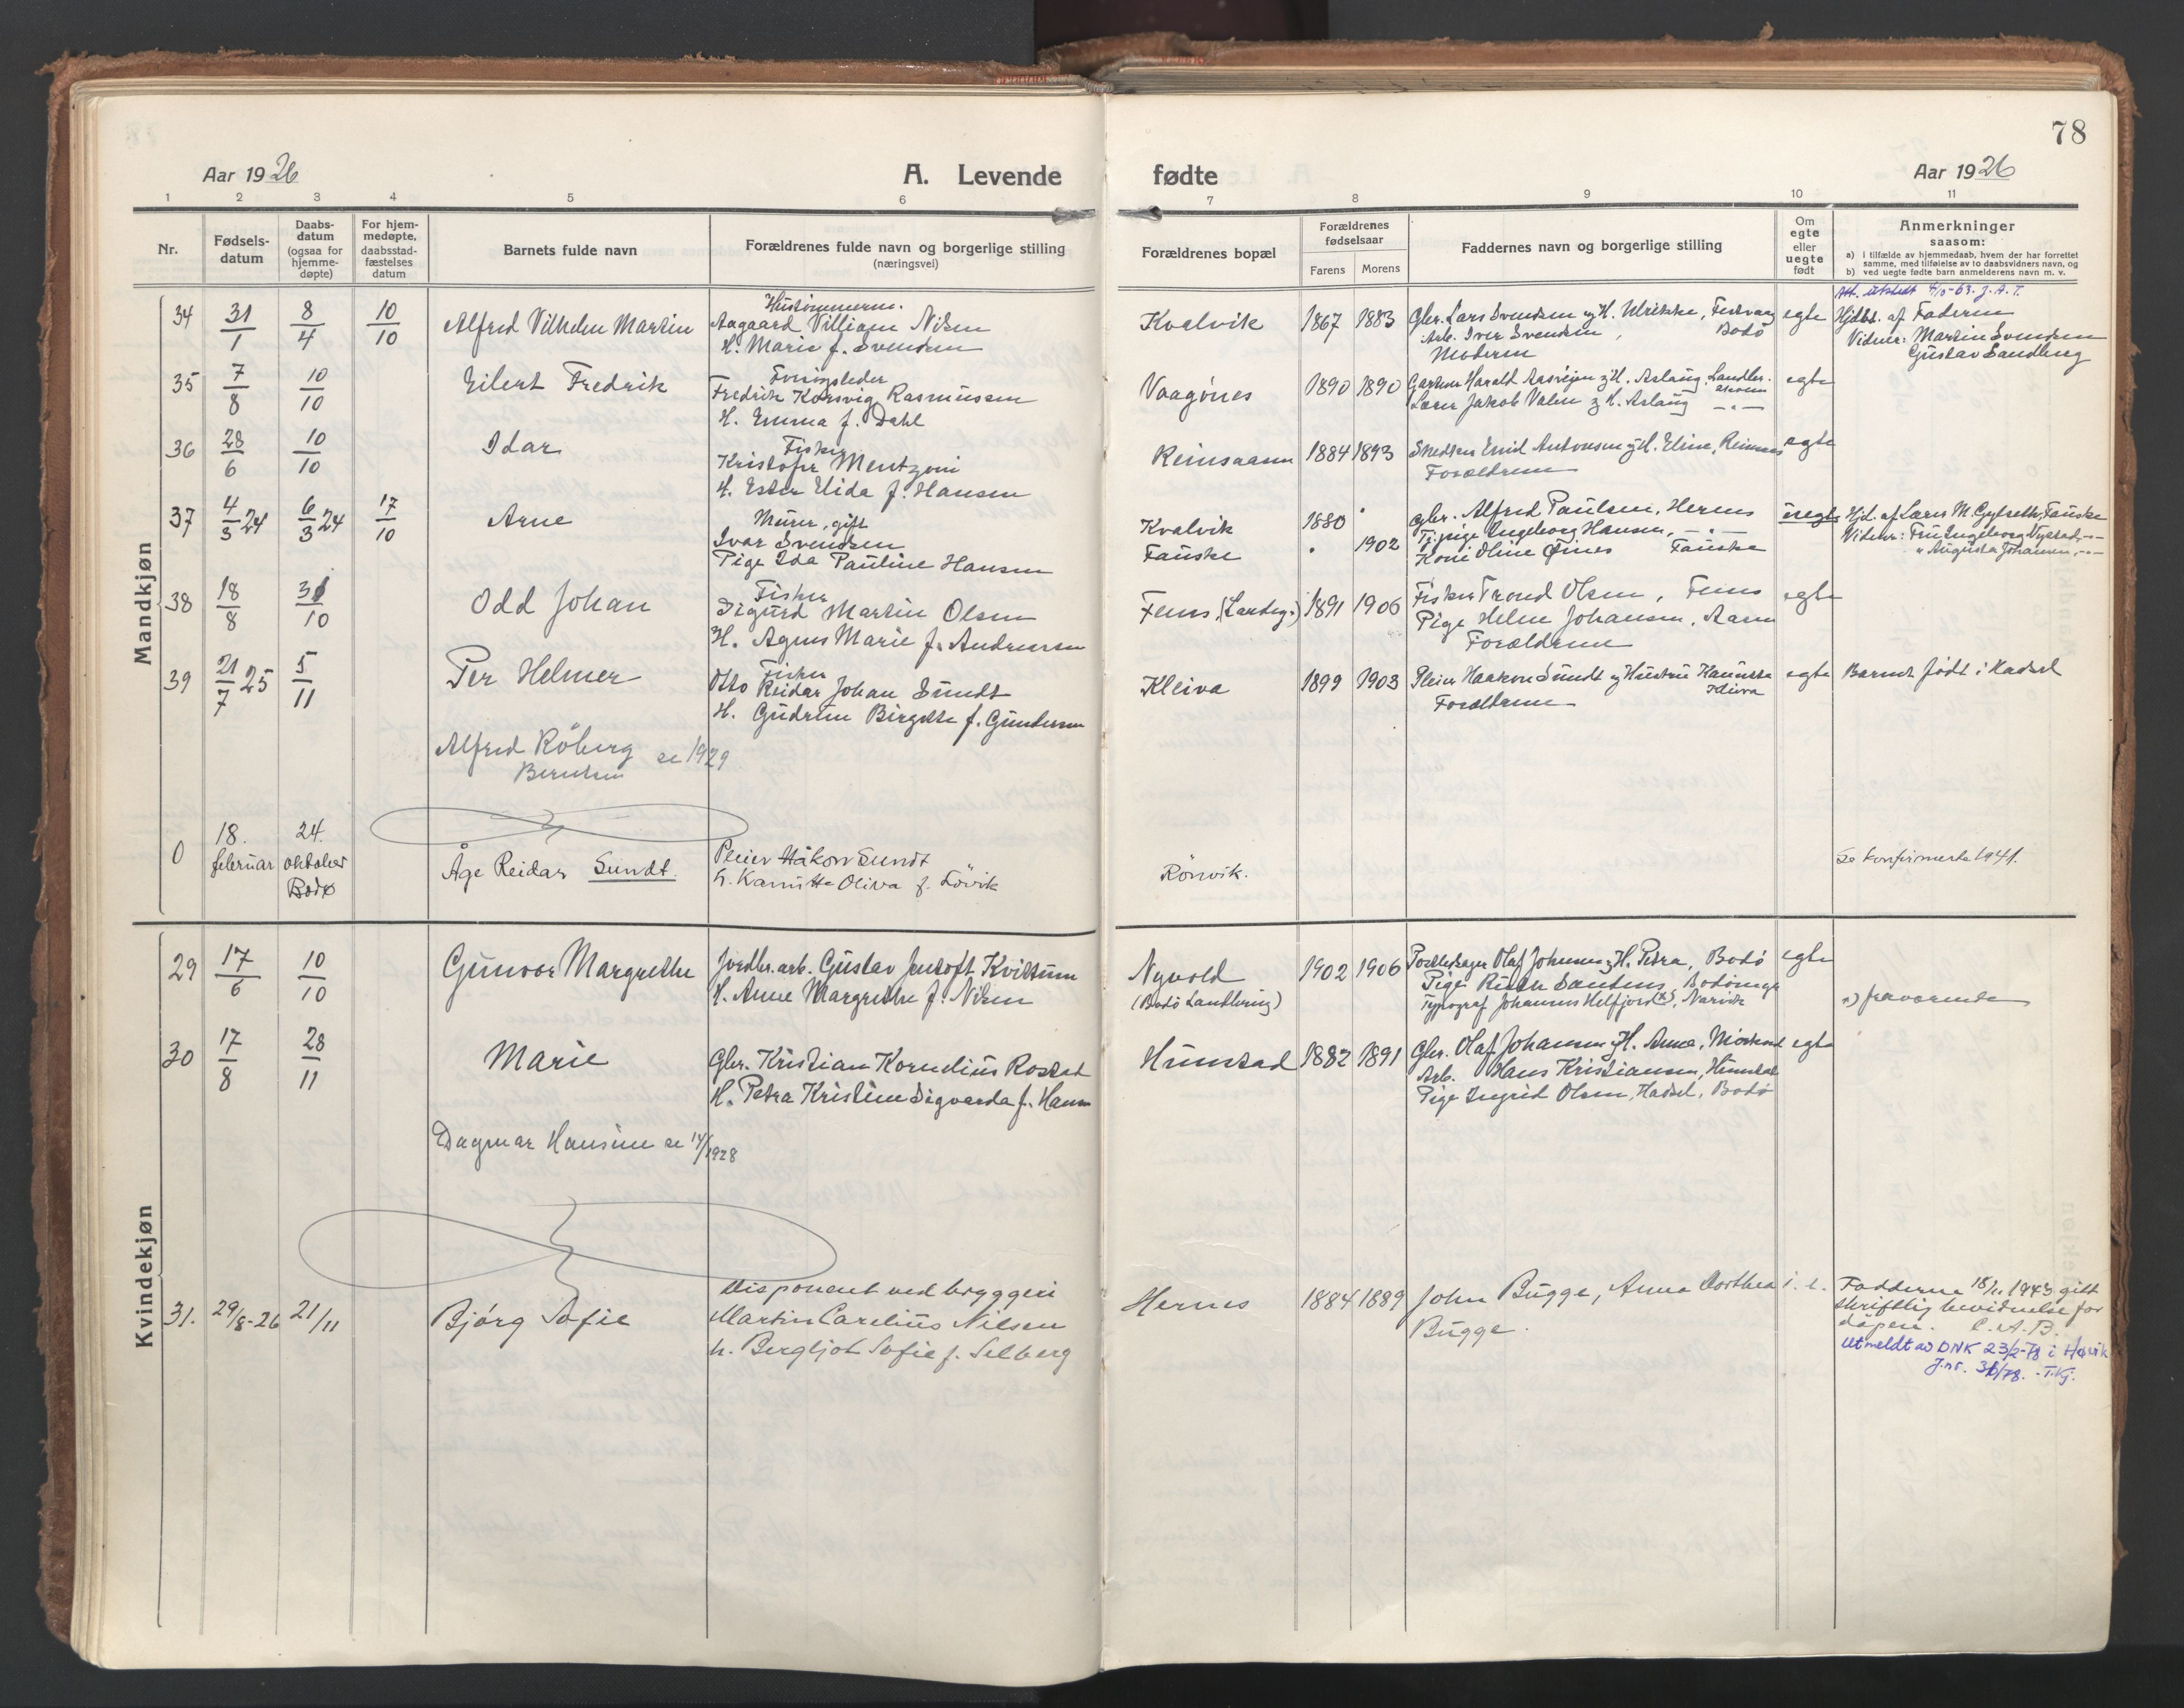 78
Aar 1926
A. Levende
fødte
Aar 1926
1 2 3 4 5 6 7 8 9 10 11
Nr.
Fødsels-
datum
Daabs-
datum
(ogsaa for
hjemme-
døpte)
For hjem-
medøpte,
daabsstad-
fæstelses
datum
Barnets fulde navn
Forældrenes fulde navn og borgerlige stilling
(næringsvei)
Forældrenes bopæl
Forældrenes
fødselsaar
Farens Morens
Faddernes navn og borgerlige stilling
Om
egte
eller
uegte
født
Anmerkninger
saasom:
a) i tilfælde av hjemmedaab, hvem der har forrettet
samme, med tilføielse av to daabsvidners navn, og
b) ved uegte fødte barn anmelderens navn m. v.
Mandkjøn
34 31/1 8/4 10/10 Alfred Vilhelm Martin
Aagaard Villiam Nilsen
H. Marie f. Svendsen
Kvalvik 1867 1883
Gbr. Lars Svendsen og H. Ulrikke, Festvaag
Arb. Iver Svendsen, Bodø
Moderen
egte
Att. utstedt 4/5-63. J.A.T.
Hjdbt. af Faderen
Vidner: Martin Svendsen
Gustav Sandberg
35 7/8 10/10 Eilert Fredrik
Fredrik Korsvig Rasmussen
H. Emma f. Dahl
Vaagønes 1890 1890
Gartner Harald
Lærer Jakob Valen og H. Aslaug
egte
36 28/6 10/10 Idar
Fisker
Kristofer Mentzoni
H. Ester Elida f. Hansen
Reinsaasen 1884 1893
Snedker Antonsen og H. Eline, Reinsaas
Forældrene
egte
37 4/3 24 6/3 24 17/10 Arne
Murer, gift
Ivar Svendsen
Pige Ida Pauline Hansen
Kvalvik 1880
Fauske 1902
gbr. Alfred Paulsen, Hernes
Tj.pige Ingeborg Hansen, -"-
Kone Oline Øines Fauske
uegte
Hjd. af Lærer M. Gylseth, Fauske
Vidner: Fru Ingeborg Nystad, -"-
" Augusta Johansen, -"-
38 18/8 31/10 Odd Johan
Fisker
Sigurd Martin Olsen
H. Agnes Marie f. Andreassen
Fenes, (Landego) 1891 1906
Fisker Trond Olsen, Fenes
Pige Helene Johansen,
Forældrene
egte
39 21/7 25 5/11 Per Helmer
Fisker
Otto Reidar Johan Sundt
H. Gudrun Birgitte f. Gundersen
Kleiva 1899 1903
Pleier Haakon Sundt og Hustru Kanutte
Kleiva
Forældrene
egte
Barnet født i Hadsel
Alfred Røberg se 1929
Berntsen
0 18. februar 24. oktober Bodø
Åge Reidar Sundt.
Pleier Håkon Sundt
h. Kanutte Oliva f. Løvik
Rønvik.
Se konfirmerte 1941.
Kvindekjøn
29 17/6 10/10 Gunvor Margrethe
Jordbr. arb. Gustav Jentoft Kvittum
H. Anne Margrethe f. Nilsen
Nyvold
(Bodø Landhering)
1902 1906
Postbetjager Olaf Johansen og H. Petra, Bodø
Pige Ruth
Typograf Johannes Helfjord x), Narvik
egte
x) fraværende
30 17/8 28/11 Marie
Gbr. Kristian Kornelius Rostad
H. Petra Kristine Sigvarda f. Hansen
Hunstad 1882 1891
Gbr. Olaf Johansen og H. Anna, Mørkved
Arb. Hans Kristiansen, Hunstad
Pige Ingrid Olsen, Hadsel, Bodø
egte
Dagmar Hansine se 1928
31. 29/8-26 21/11 Bjørg Sofie
Disponent ved bryggeri
Martin Carelius Nilsen
h. Bergljot Sofie f. Selberg
Hernes 1884 1889
John Bugge, Anna Dorthea
Bugge.
Fadderne 18/11 1943 gitt
skriftlig bevidnelse for
dåpen. C.A.B.
Utmeldt av DNK 23/2-78 i
J.nr. 36/78. - T.Kj.